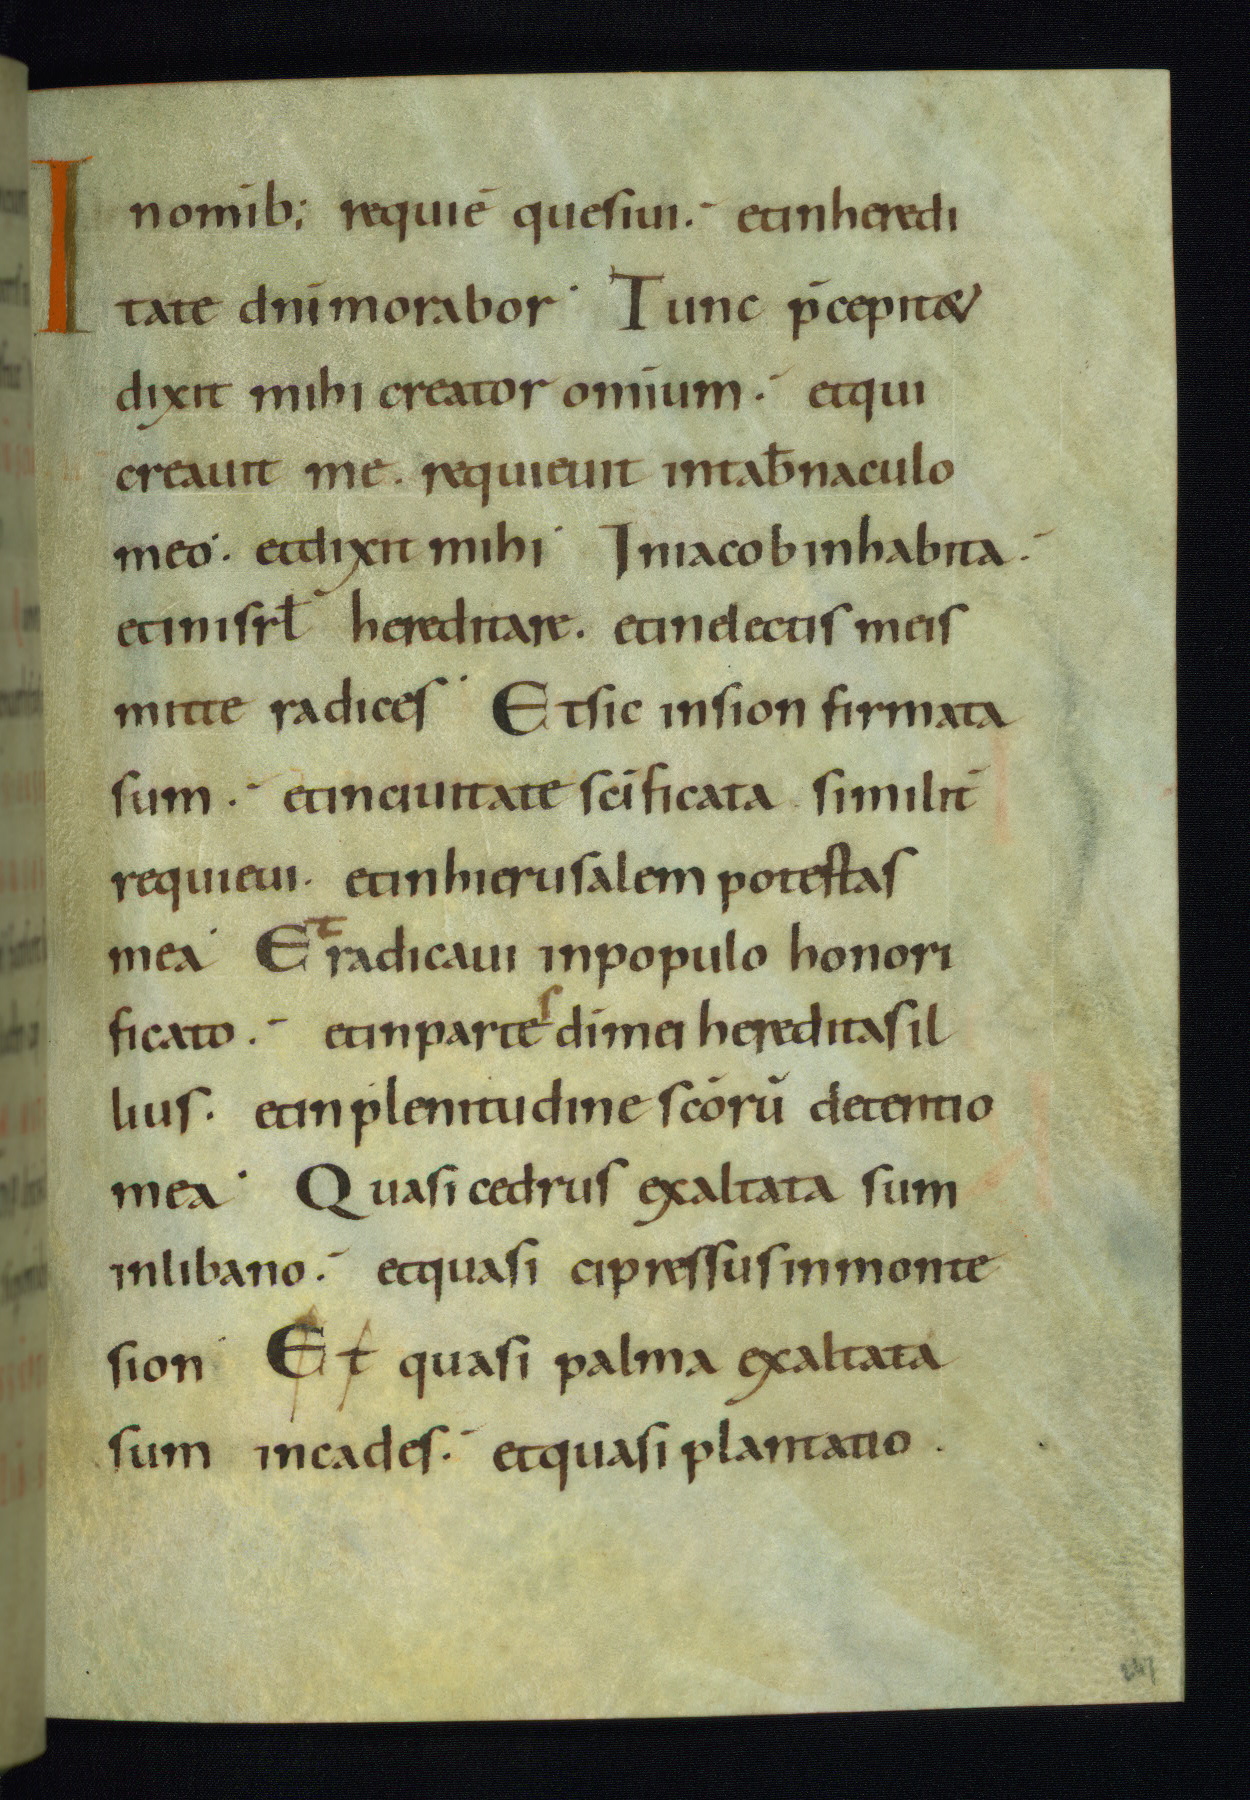 In omīb; requiē quesiui. et in heredi
tate dn̄i morabor. Tunc p̄cepit &
dixit mihi creator omīum. et qui
creauit me. requieuit in tab̄naculo
meo. et dixit mihi. In iacob inhabita.
et in isrl̄ hereditare. et in electis meis
mitte radices. Et sic in sion firmata
sum. et in ciuitate scīficata similit̄
requieui. et in hierusalem potestas
mea. Et radicaui in populo honori
ficato. et in partes dī mei hereditas il
lius. et in plenitudine scōrū detentio
mea. Quasi cedrus exaltata sum
in libano. et quasi cipressus in monte
sion. Et quasi palma exaltata
sum in cades. et quasi plantatio.
247